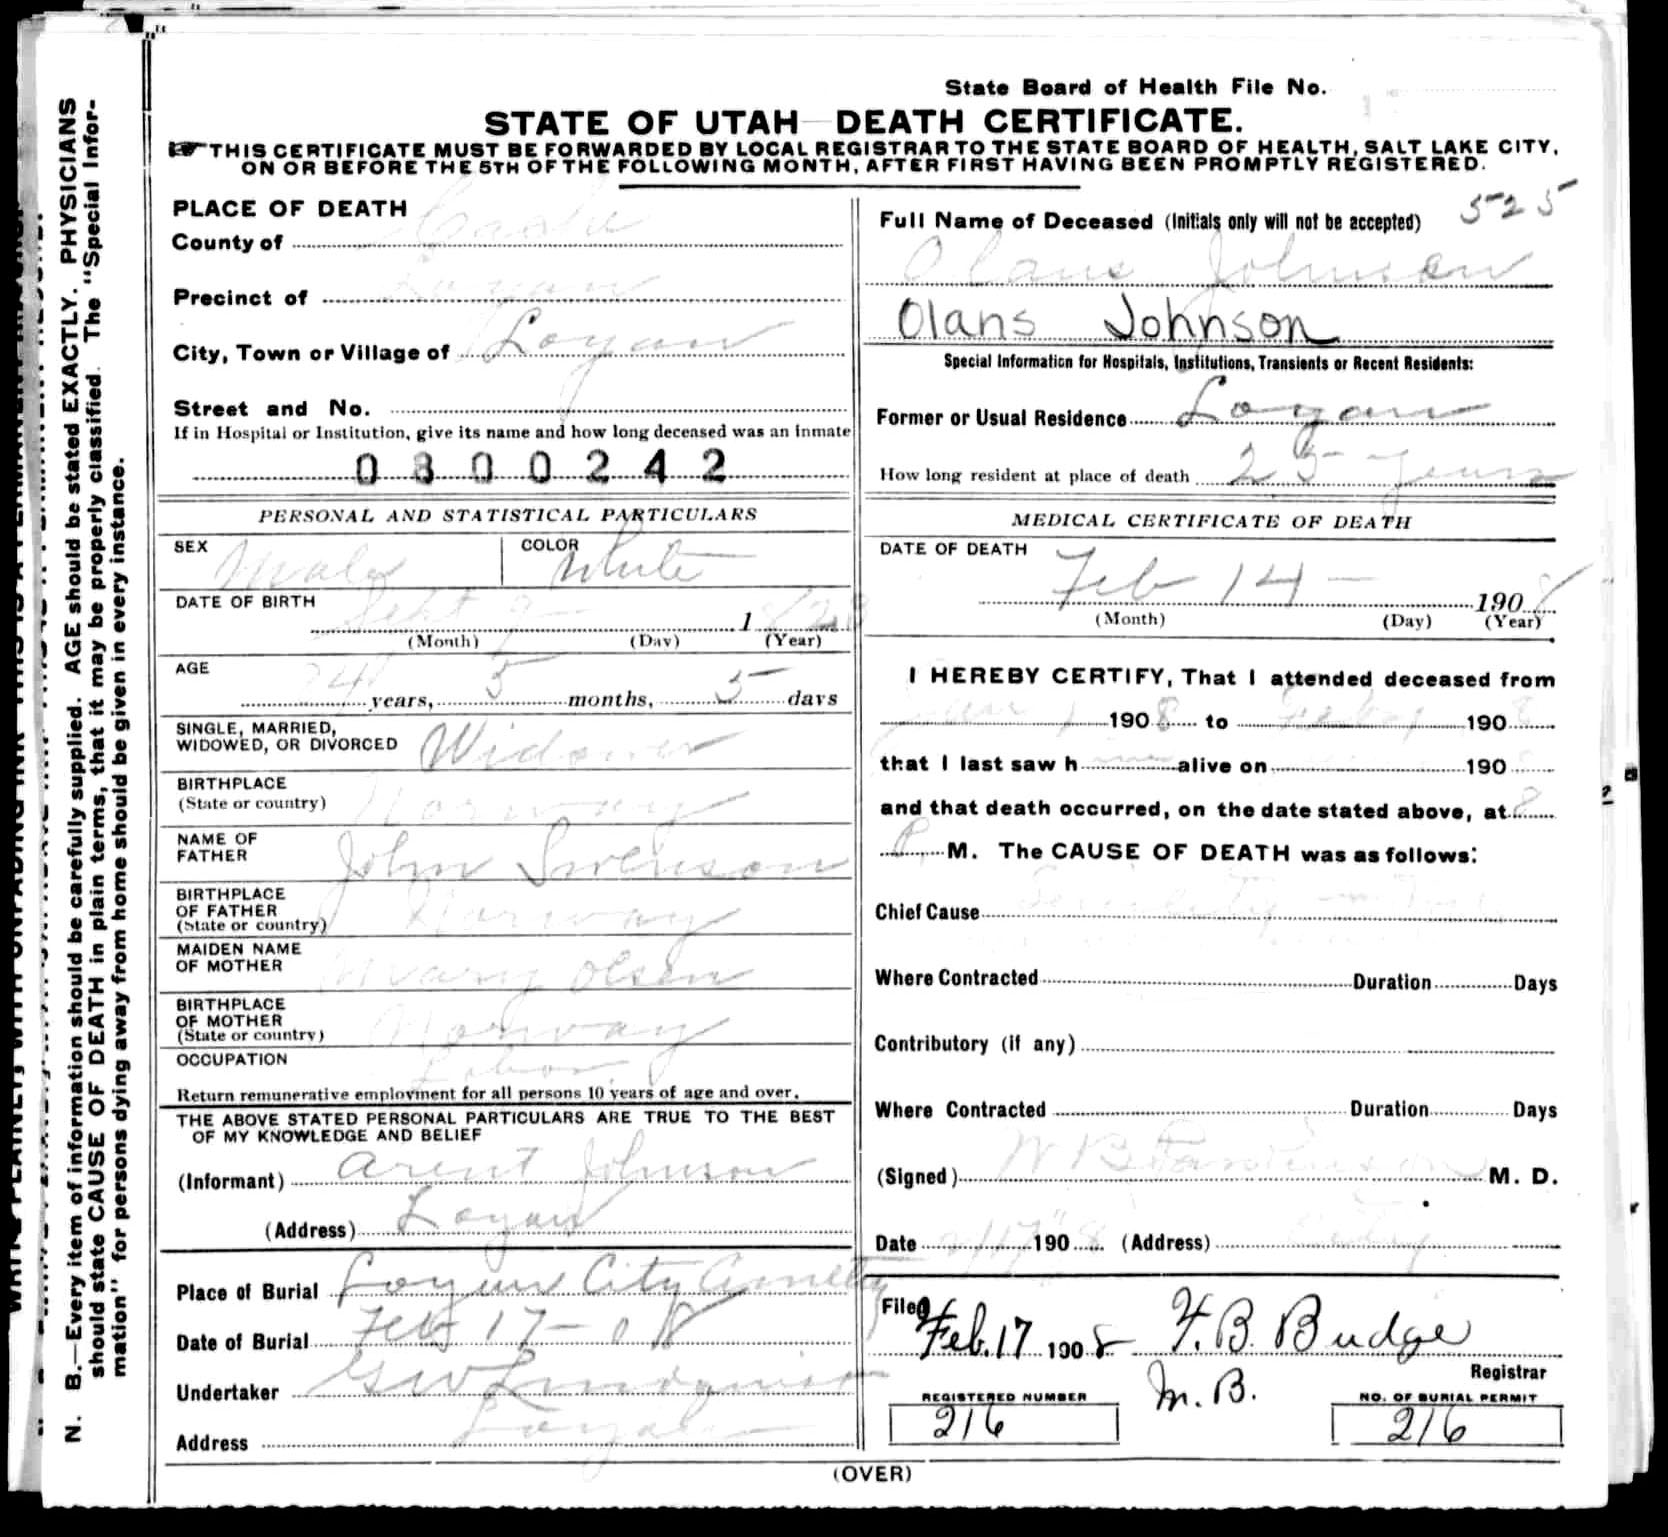 State Board of Health File No.
STATE OF UTAH DEATH CERTIFICATE.
THIS CERTIFICATE MUST BE FORWARDED BY LOCAL REGISTRAR TO THE STATE BOARD OF HEALTH, SALT LAKE CITY,
ON OR BEFORE THE 5TH OF THE FOLLOWING MONTH, AFTER FIRST HAVING BEEN PROMPTLY REGISTERED.
N. B.—Every item of information should be carefully supplied. AGE should be stated EXACTLY. PHYSICIANS
should state CAUSE OF DEATH in plain terms, that it may be properly classified. The "Special Infor-
mation" for persons dying away from home should be given in every instance.
PLACE OF DEATH
County of Cache
Precinct of Logan
City, Town or Village of Logan
Street and No.
If in Hospital or Institution, give its name and how long deceased was an inmate
0 8 0 0 2 4 2
PERSONAL AND STATISTICAL PARTICULARS
SEX Male COLOR White
DATE OF BIRTH Sept 9 1
(Month) (Day) (Year)
AGE
years, 5 months, 5 days
SINGLE, MARRIED,
WIDOWED, OR DIVORCED Widower
BIRTHPLACE
(State or country) Norway
NAME OF
FATHER John Swenson
BIRTHPLACE
OF FATHER
(State or country) Norway
MAIDEN NAME
OF MOTHER Mary Olsen
BIRTHPLACE
OF MOTHER
(State or country) Norway
OCCUPATION
Return remunerative employment for all persons 10 years of age and over.
THE ABOVE STATED PERSONAL PARTICULARS ARE TRUE TO THE BEST
OF MY KNOWLEDGE AND BELIEF
(Informant) Arent Johnson
(Address) Logan
Place of Burial Logan City Cemetery
Date of Burial Feb 17-08
Undertaker G W Lindquist
Address Logan
Full Name of Deceased (Initials only will not be accepted) 525
Olans Johnson
Olans Johnson
Special Information for Hospitals, Institutions, Transients or Recent Residents:
Former or Usual Residence Logan
How long resident at place of death 25 years
MEDICAL CERTIFICATE OF DEATH
DATE OF DEATH Feb 14 - 1908
(Month) (Day) (Year)
I HEREBY CERTIFY, That I attended deceased from
Jan 1 1908 to 1908
that I last saw h im alive on 190
and that death occurred, on the date stated above, at 8
P M. The CAUSE OF DEATH was as follows:
Chief Cause
Where Contracted Duration Days
Contributory (if any)
Where Contracted Duration Days
(Signed) M. D.
Date 2/17 1908 (Address)
Filed
Feb. 17 1908 F. B. Budge
Registrar
M. B.
REGISTERED NUMBER
216
NO. OF BURIAL PERMIT
216
(OVER)